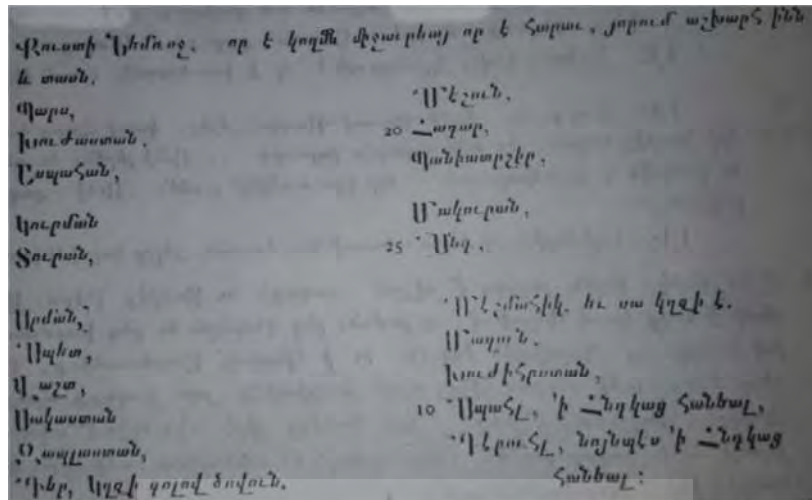 Քուստի Նեմռոջ. որ է կողմն միջաւրեայ որ է Հարաւ, յորում աշխարՀ ինն
և տասն.
Պարս,
Խուժաստան.
Ըսպահան,
Կուրման
Տուրան,
Սպետ,
Վաշտ,
Սակաստան
Զապլաստան,
Դեր, Կղզի գոլով ծովուն.
Մէշուն.
20 Հագար,
Պանիատրշիր,
Մակուրան,
25 Մեզ.
Մէշմահիկ. եւ սա կղզի է.
Մազուն.
Խուժիհրստան,
10 Սպահլ, ՛ի Հնդկաց Հանեալ,
Դէբուհլ, նոյնպէս ՛ի Հնդկաց
Հանեալ։